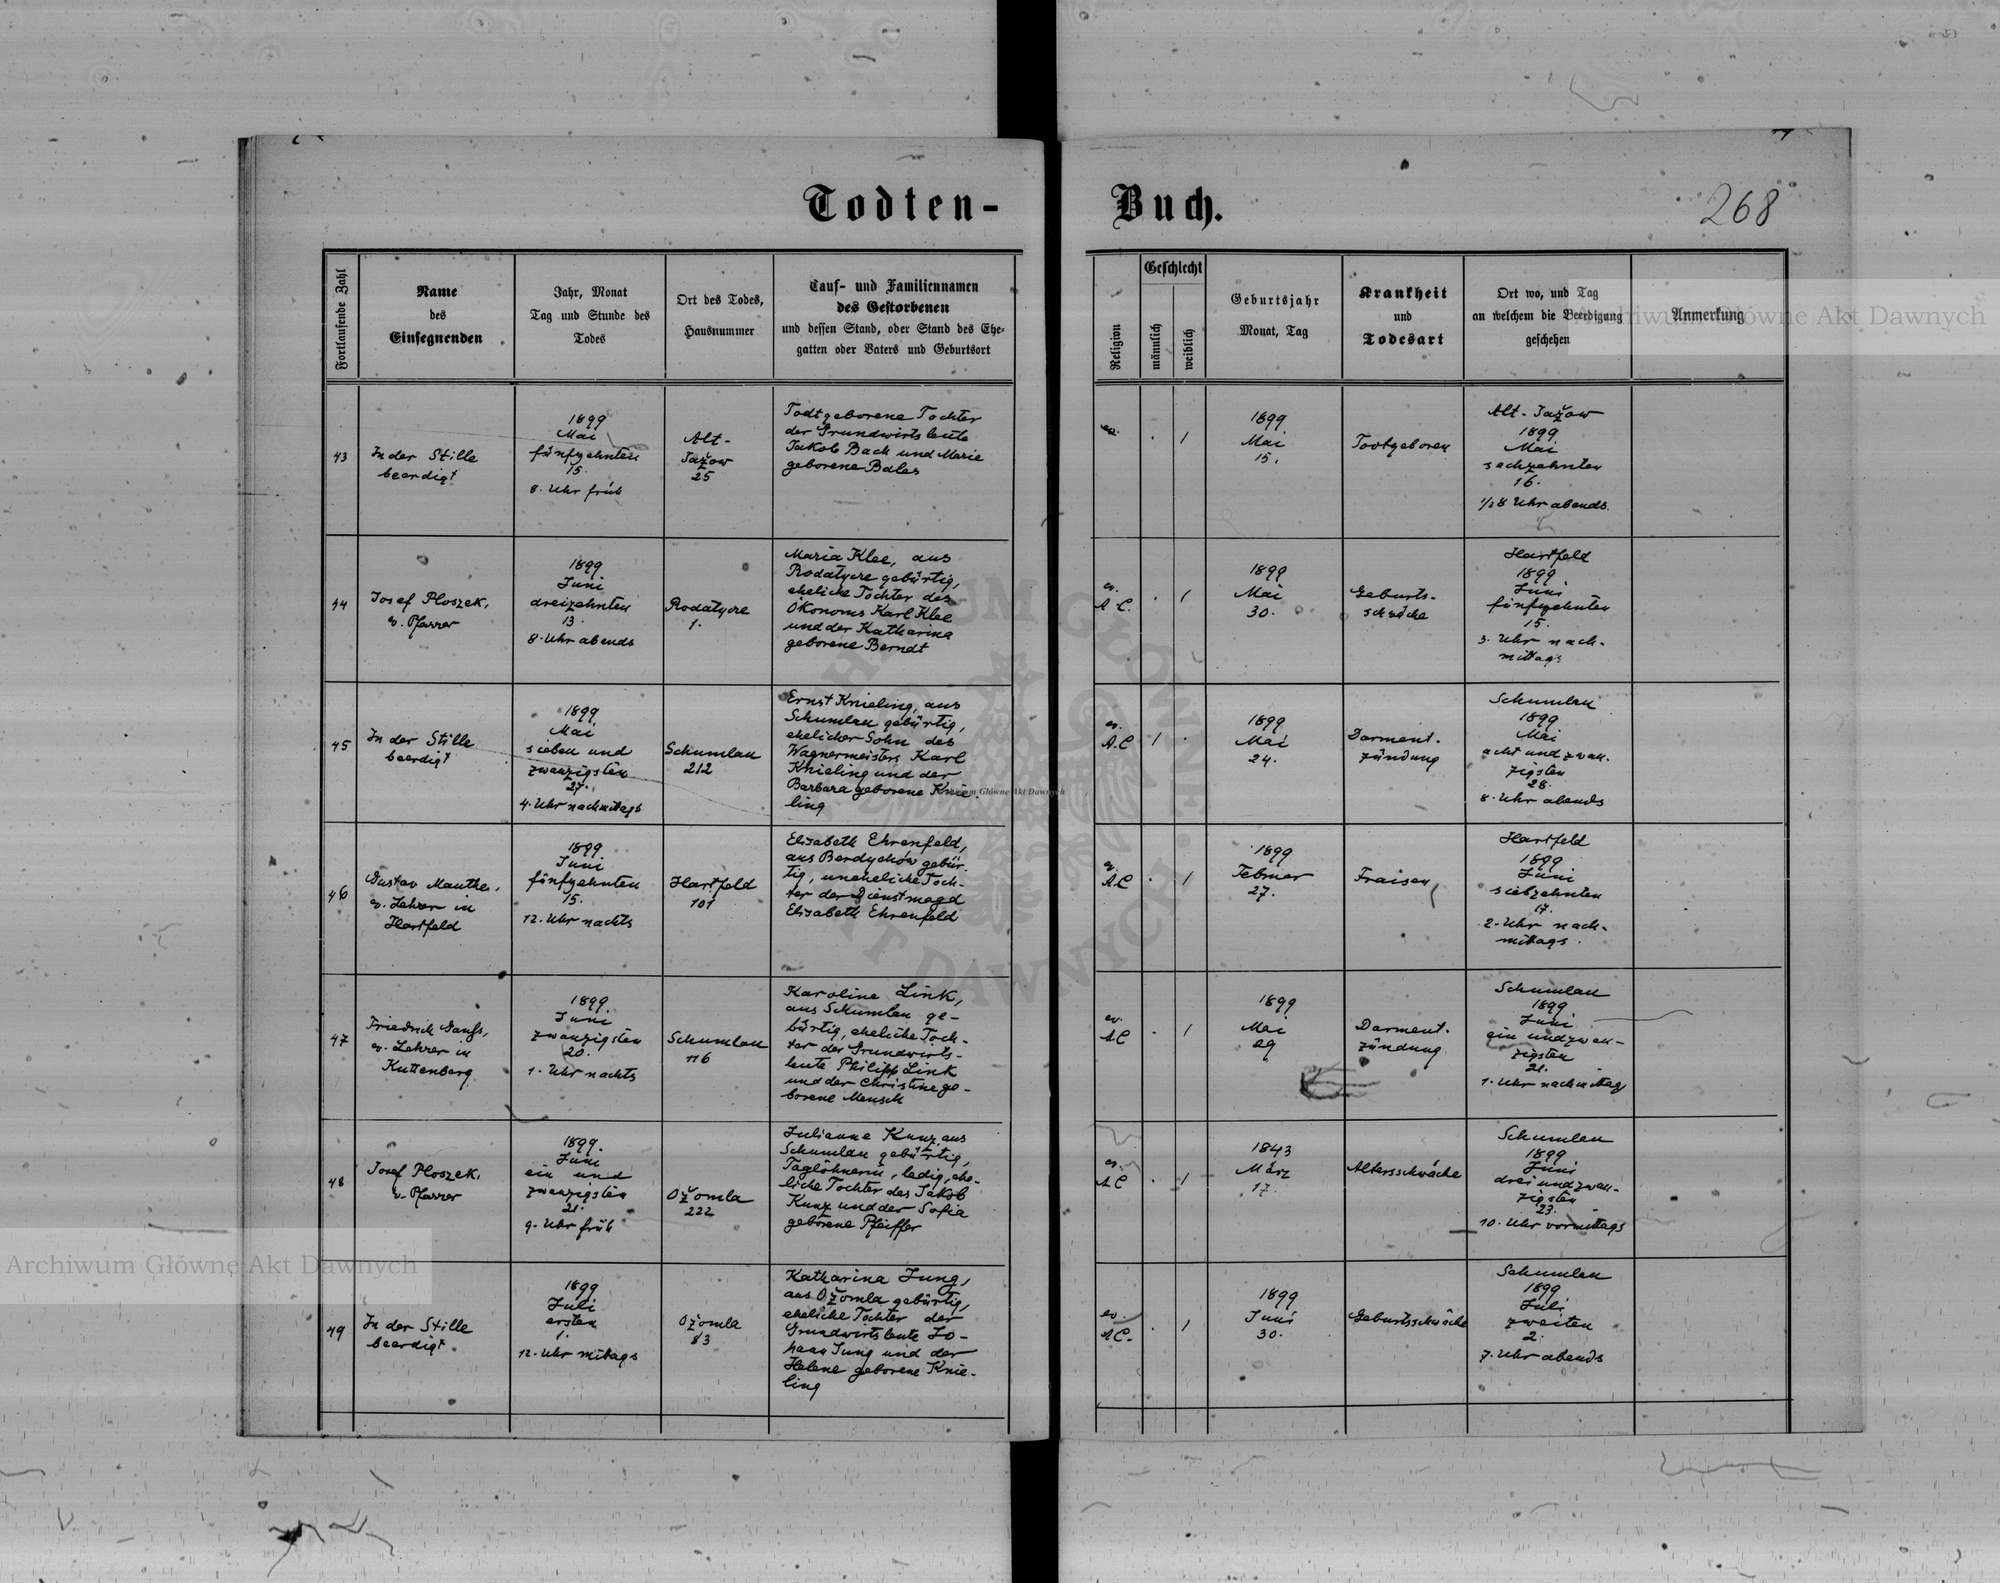 Todten-
Buch.
268
Fortlaufende Zahl
Name
des
Einsegnenden
Jahr, Monat
Tag und Stunde des
Todes
Ort des Todes,
Hausnummer
Tauf- und Familiennamen
des Gestorbenen
und dessen Stand, oder Stand des Ehe-
gatten oder Vaters und Geburtsort
Religion
Geschlecht
männlich
weiblich
Geburtsjahr
Monat, Tag
Krankheit
und
Todesart
Ort wo, und Tag
an welchem die Beerdigung
geschehen
Anmerkung
43
In der Stille
beerdigt
1899
Mai
fünfzehnten
15.
8. Uhr früh
Alt-
Jažow
25
Todtgeborene Tochter
der Grundwirtsleute
Jakob Bach und Marie
geborene Bales
ev.
1899
Mai
15.
Todtgeboren
Alt-Jažow
1899
Mai
sechzehnten
16.
1/2 8 Uhr abends.
44
Josef Ploszek,
ev. Pfarrer
1899
Juni
dreizehnten
13.
8. Uhr abends
Rodatycze
1.
Maria Klee, aus
Rodatycze gebürtig,
eheliche Tochter des
Ökonoms Karl Klee
und der Katharina
geborene Berndt
ev.
A.C.
1899
Mai
30.
Geburts-
schwäche
Hartfeld
1899
Juni
fünfzehnten
15.
3. Uhr nach-
mittags
45
In der Stille
beerdigt
1899
Mai
sieben und
zwanzigsten
27.
4. Uhr nachmittags
Schumlau
212
Ernst Knieling, aus
Schumlau gebürtig,
ehelicher Sohn des
Wagnermeisters Karl
Knieling und der
Barbara geborene Knie-
ling
ev.
A.C
1899
Mai
24.
Darment-
zündung
Schumlau
1899
Mai
acht und zwan-
zigsten
28.
8. Uhr abends
46
Gustav Manthe,
ev. Lehrer in
Hartfeld
1899
Juni
fünfzehnten
15.
12. Uhr nachts
Hartfeld
101
Elisabeth Ehrenfeld,
aus Berdychów gebür-
tig, uneheliche Toch-
ter der Dienstmagd
Elisabeth Ehrenfeld
ev.
A.C
1899
Februar
27.
Fraisen
Hartfeld
1899
Juni
siebzehnten
17.
2. Uhr nach-
mittags.
47
Friedrich
ev. Lehrer in
Kuttenberg
1899
Juni
zwanzigsten
20.
1. Uhr nachts
Schumlau
116
Karoline Link,
aus Schumlau ge-
bürtig, eheliche Toch-
ter der Grundwirts-
leute Philipp Link
und der Christine ge-
borene Mensch
ev.
A.C
1899
Mai
29
Darment-
zündung
Schumlau
1899
Juni
ein und zwan-
zigsten
21.
1. Uhr nachmittag
48
Josef Ploszek,
ev. Pfarrer
1899
Juni
ein und
zwanzigsten
21.
9. Uhr früh
Ožomla
222
Julianne Kunz, aus
Schumlau gebürtig,
Taglöhnerin, ledig, ehe-
liche Tochter des Jakob
Kunz und der Sofia
geborene Pfeiffer
ev.
A.C
1843
März
17.
Altersschwäche
Schumlau
1899
Juni
drei und zwan-
zigsten
23.
10. Uhr vormittags
49
In der Stille
beerdigt.
1899
Juli
ersten
1.
12. Uhr mittags
Ožomla
83
Katharina Jung,
aus Ožomla gebürtig,
eheliche Tochter der
Grundwirtsleute Jo-
hann Jung und der
Helene geborene Knie-
ling
ev.
A.C.
1899
Juni
30.
Geburtsschwäche
Schumlau
1899
Juli
zweiten
2.
7. Uhr abends
Archiwum Główne Akt Dawnych
Archiwum Główne Akt Dawnych
Archiwum Główne Akt Dawnych